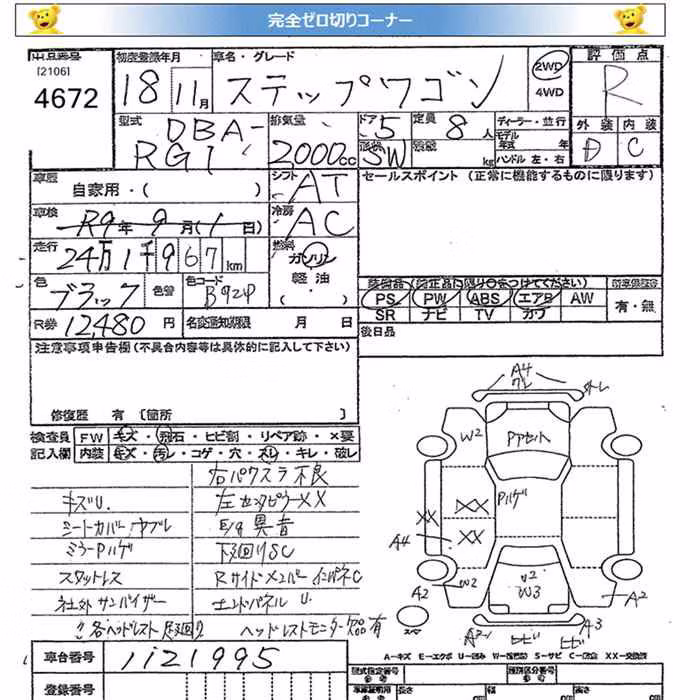 完全ゼロ切りコーナー
出品番号 初度登録年月 車名・グレード 評価点
[2106]
4672 18 11月 ステップワゴン 2WD 4WD R
型式 DBA-RG1 排気量 2000cc ドア 5 定員 8人 ディーラー・並行 外装 内装
形状 SW 積載 kg モデル年式 年 ハンドル 左・右 D C
車歴 自家用・( ) シフト AT セールスポイント (正常に機能するものに限ります)
車検 R9年9月(1日) 冷房 AC
走行 24万1千967km 燃料 ガソリン 軽油
色 ブラック 色替 カラーコード B92P
装備品 (純正品に限り○をつけてください)
PS PW ABS エアB AW 有・無
SR ナビ TV カワ
R券 12480円 名変通知期限 月 日 後日品
注意事項申告欄(不具合内容等は具体的に記入して下さい)
修復歴 有 [箇所 ]
検査員 FW キズ・飛石・ヒビ割・リペア跡・×要
記入欄 内装 キズ・汚レ・コゲ・穴・スレ・キレ・破レ
右パワスラ不良
キズU.
シートカバー
E/g異音
ミラーPハゲ
下廻りSC
スタットレス
Rサイドメンバー インパネC
社外サンバイザー
エンドパネルU
各ヘッドレスト
ヘッドレストモニター欠品有
A4
W2
Pハゲ
XX
XX
XX
A4
A2
W2
W3
A2
A3
ヒビ
ヒビ
スペア
A-キズ E-エクボ U-凹み W-補修跡 S-サビ C-腐食 XX-交換済
車台番号 1121995
登録番号
型式指定番号 参考 類別区分番号 参考
長さ 幅 高さ